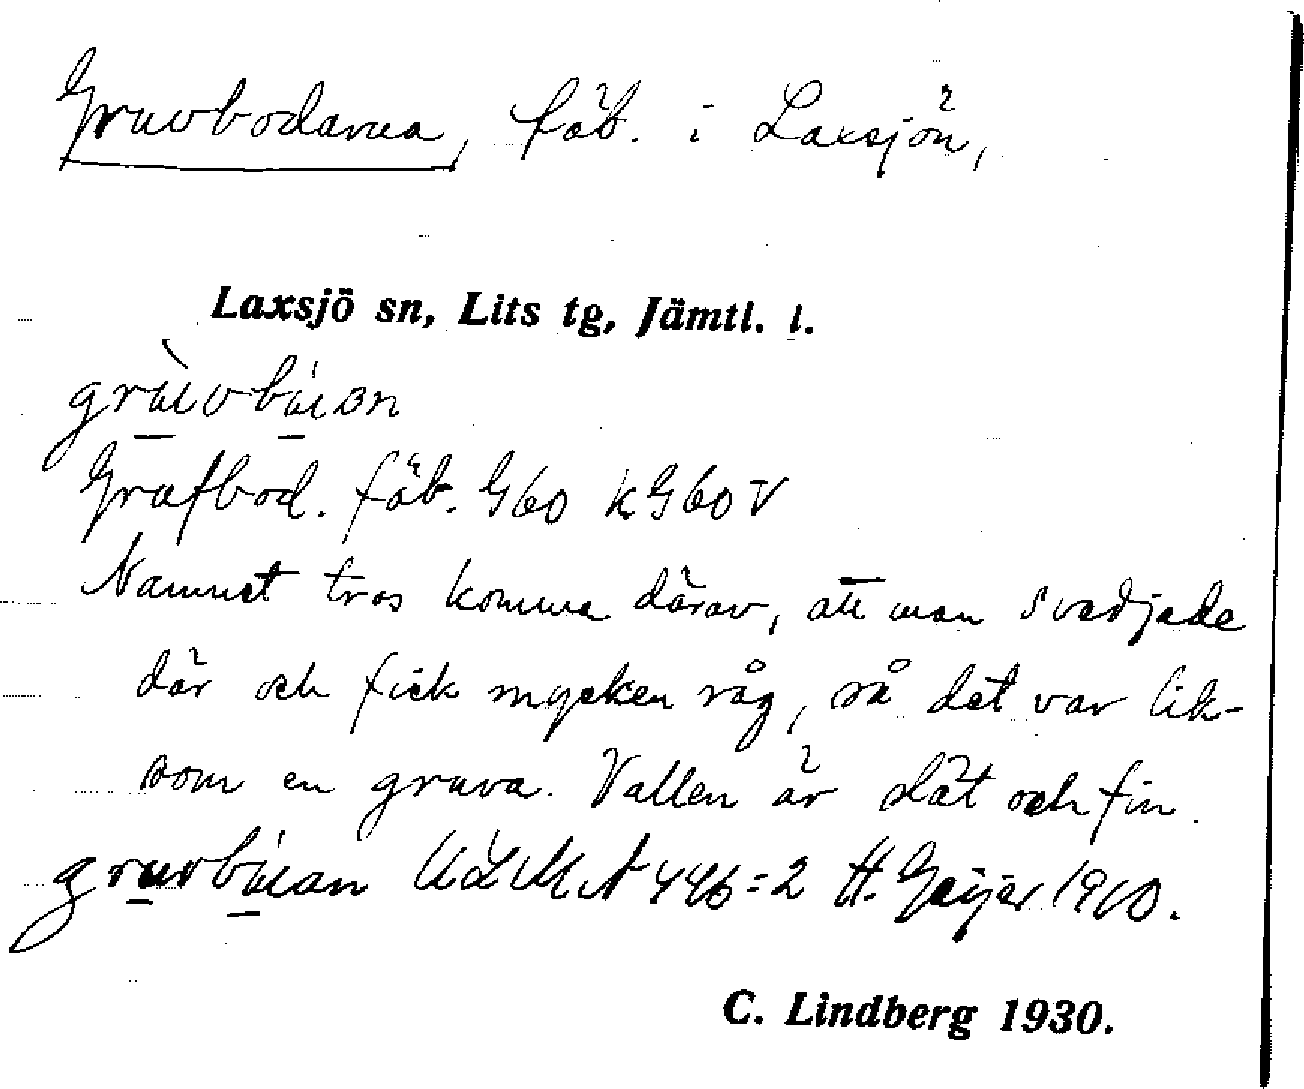 Gruvbodarna, fäb. i Laxsjön,
Laxsjö sn, Lits tg, Jämtl. l.
Grufbod. fäb. G60 kG60V
Namnet tros komma därav, att man svedjade
där och fick mycken råg, så det var lik-
som en gruva. Vallen är slät och fin.
ULMA 446:2 H. Geijer 1910.
C. Lindberg 1930.